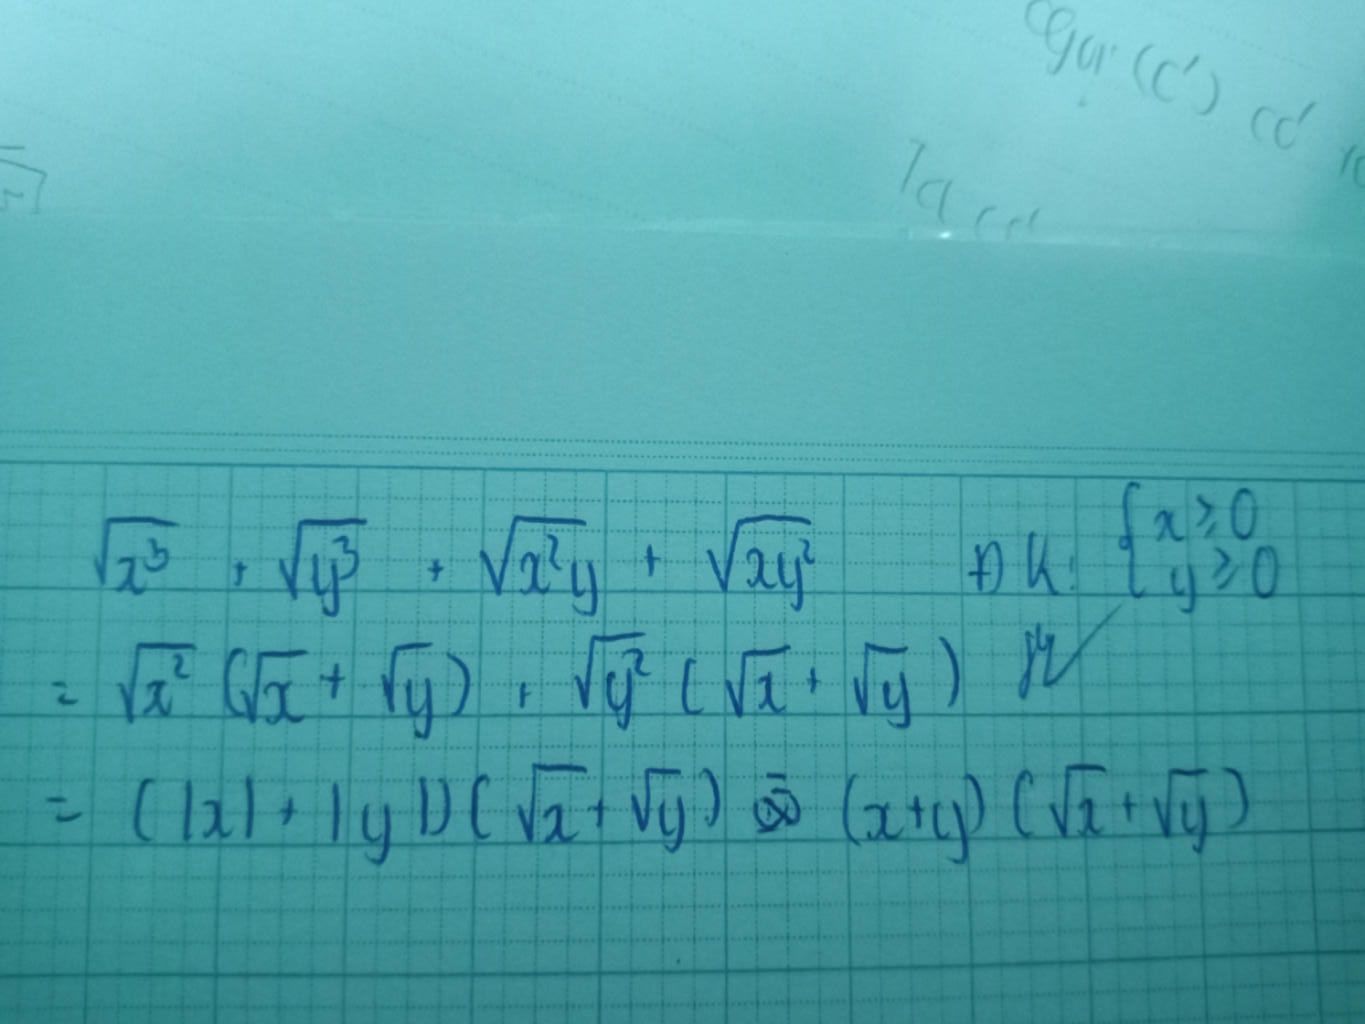 (c') cd'
√x³ + √y³ + √x²y + √xy² ĐK: { x ≥ 0
y ≥ 0
= √x² (√x + √y) + √y² (√x + √y)
= (|x| + |y|)(√x + √y) = (x+y) (√x + √y)